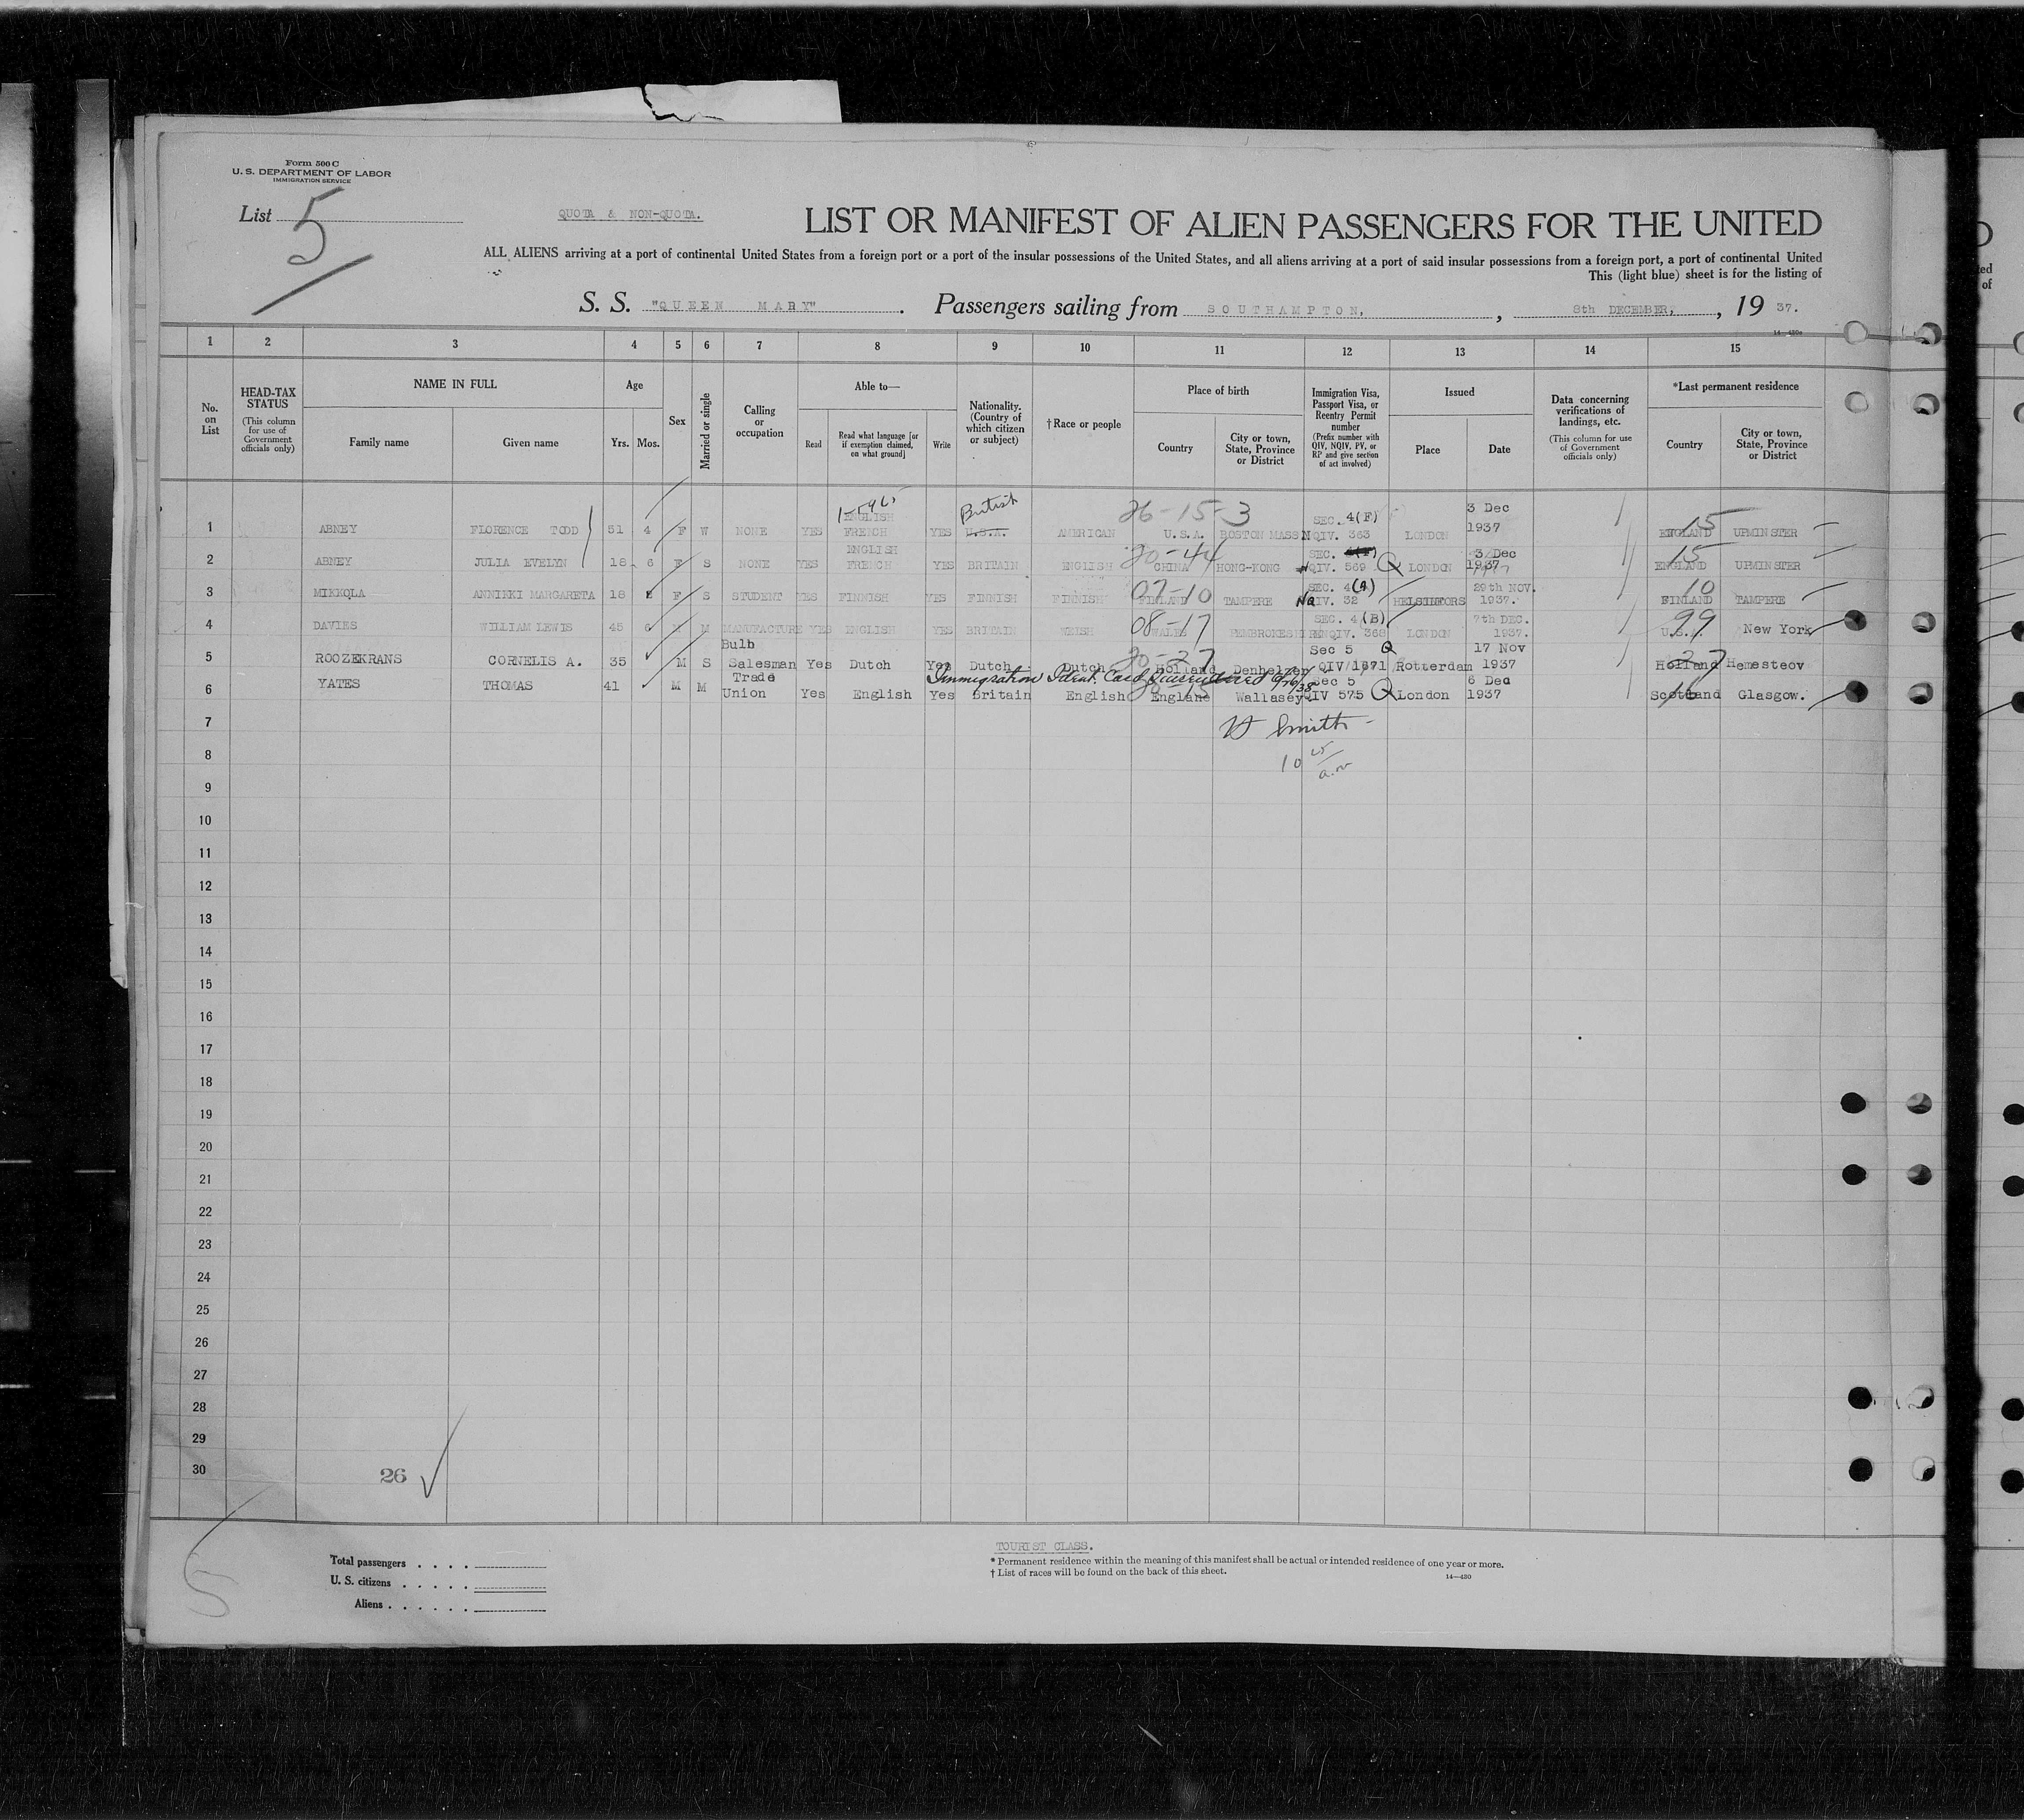 Form 500 C
U. S. DEPARTMENT OF LABOR
IMMIGRATION SERVICE
List 5
QUOTA & NON-QUOTA.
LIST OR MANIFEST OF ALIEN PASSENGERS FOR THE UNITED
ALL ALIENS arriving at a port of continental United States from a foreign port or a port of the insular possessions of the United States, and all aliens arriving at a port of said insular possessions from a foreign port, a port of continental United
This (light blue) sheet is for the listing of
S. S. "QUEEN MARY". Passengers sailing from SOUTHAMPTON, , 8th DECEMBER, , 19 37.
14—430c
1 2 3 4 5 6 7 8 9 10 11 12 13 14 15
No. on List
HEAD-TAX STATUS
(This column for use of Government officials only)
NAME IN FULL
Family name
Given name
Age
Yrs. Mos.
Sex
Married or single
Calling or occupation
Able to—
Read
Read what language [or if exemption claimed, on what ground]
Write
Nationality. (Country of which citizen or subject)
† Race or people
Place of birth
Country
City or town, State, Province or District
Immigration Visa, Passport Visa, or Reentry Permit number
(Prefix number with QIV, NQIV, PV, or RP and give section of act involved)
Issued
Place
Date
Data concerning verifications of landings, etc.
(This column for use of Government officials only)
*Last permanent residence
Country
City or town, State, Province or District
British 26-15-3 3 Dec
ENGLISH SEC. 4(F) 15
1 ABNEY FLORENCE TODD 51 4 F W NONE YES FRENCH YES U.S.A. AMERICAN U.S.A. BOSTON MASS NQIV. 363 LONDON 1937 ENGLAND UPMINSTER
ENGLISH 20-44 SEC. 3 Dec 15
2 ABNEY JULIA EVELYN 18 6 F S NONE YES FRENCH YES BRITAIN ENGLISH CHINA HONG-KONG QIV. 569 Q LONDON 1937 ENGLAND UPMINSTER
07-10 SEC. 4(A) 29th NOV. 10
3 MIKKOLA ANNIKKI MARGARETA 18 F S STUDENT YES FINNISH YES FINNISH FINNISH FINLAND TAMPERE NQIV. 32 HELSINFORS 1937. FINLAND TAMPERE
08-17 SEC. 4(B) 7th DEC. 99
4 DAVIES WILLIAM LEWIS 45 6 M M MANUFACTURE YES ENGLISH YES BRITAIN WELSH WALES PEMBROKESHIRE NQIV. 368 LONDON 1937. U.S.A. New York
Bulb 20-27 Sec 5 Q 17 Nov 27
5 ROOZEKRANS CORNELIS A. 35 M S Salesman Yes Dutch Yes Dutch Dutch Holland Denhelder QIV/1671 Rotterdam 1937 Holland Hemesteov
Immigration Ident. Card Surrendered
Trade Sec 5 6 Dec 16
6 YATES THOMAS 41 M M Union Yes English Yes Britain English England Wallasey QIV 575 Q London 1937 Scotland Glasgow.
7
Smith
8
10 15 a.m
9
10
11
12
13
14
15
16
17
18
19
20
21
22
23
24
25
26
27
28
29
30
26
5
Total passengers . . . .
U. S. citizens . . . . .
Aliens . . . . . .
TOURIST CLASS.
* Permanent residence within the meaning of this manifest shall be actual or intended residence of one year or more.
† List of races will be found on the back of this sheet.
14—430